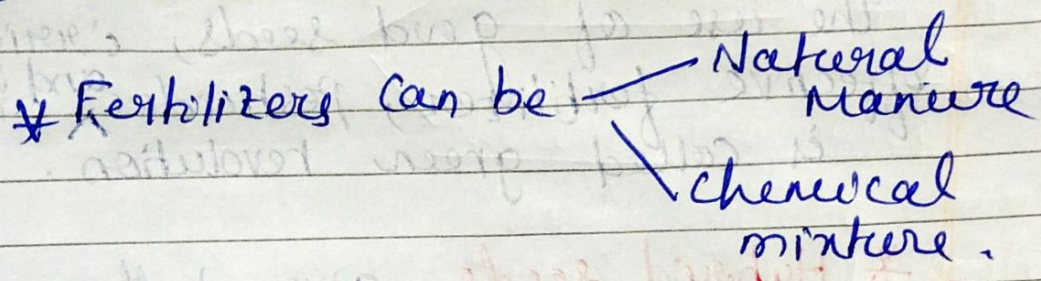 * Fertilizers can be — Natural
Manure
chemical
mixture.